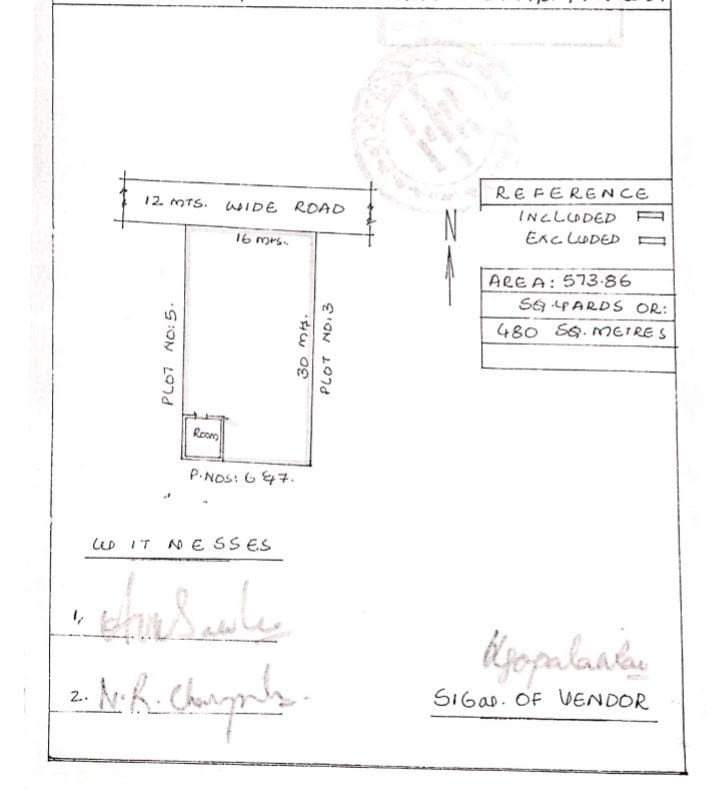 12 MTS. WIDE ROAD
16 mts.
PLOT NO:5.
30 mts.
PLOT NO:3
Room
P.NOS: 6 & 7.
N
REFERENCE
INCLUDED
EXCLUDED
AREA: 573.86
SQ.YARDS OR:
480 SQ.METRES
WITNESSES
1,
2. N.R.
SIGN. OF VENDOR